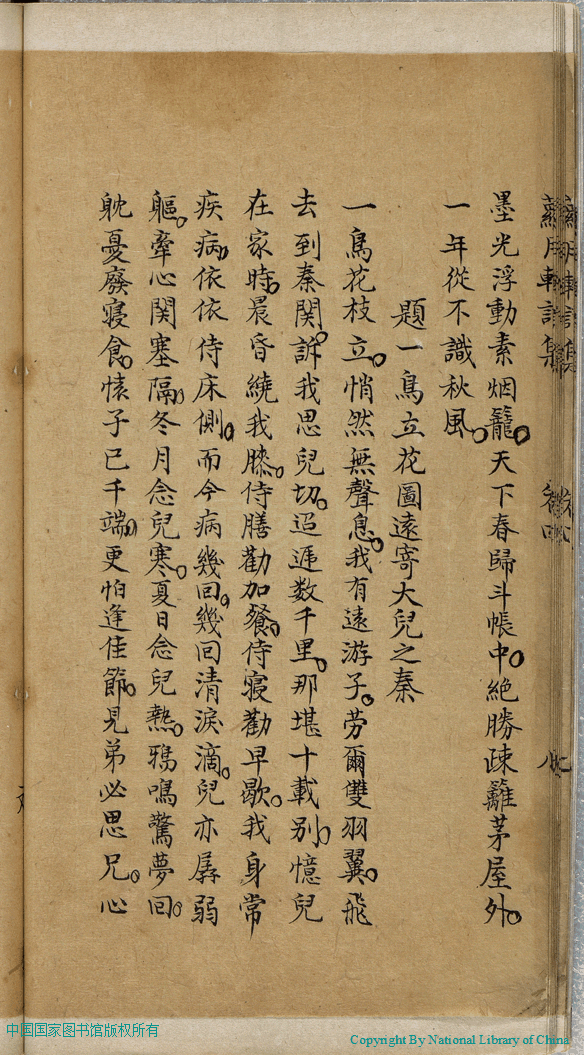 墨光浮動素烟籠天下春歸斗帳中絶勝疎籬茅屋外
一年從不識秋風
題一鳥立花圖遠寄大兒之秦
一鳥花枝立悄然無聲息我有遠游子劳爾雙羽翼飛
去到秦関訴我思兒切迢遞数千里那堪十載别憶兒
在家時晨昏繞我膝侍膳勸加餐侍寝勸早歇我身常
疾病依依侍床側而今病幾回幾回清淚滴兒亦孱弱
軀牽心関塞隔冬月念兒寒夏日念兒熱鴉鳴驚夢回
躭憂廢寝食懐子已千端更怕逢佳節見弟必思兄心
中国国家图书馆版权所有
Copyright By National Library of China